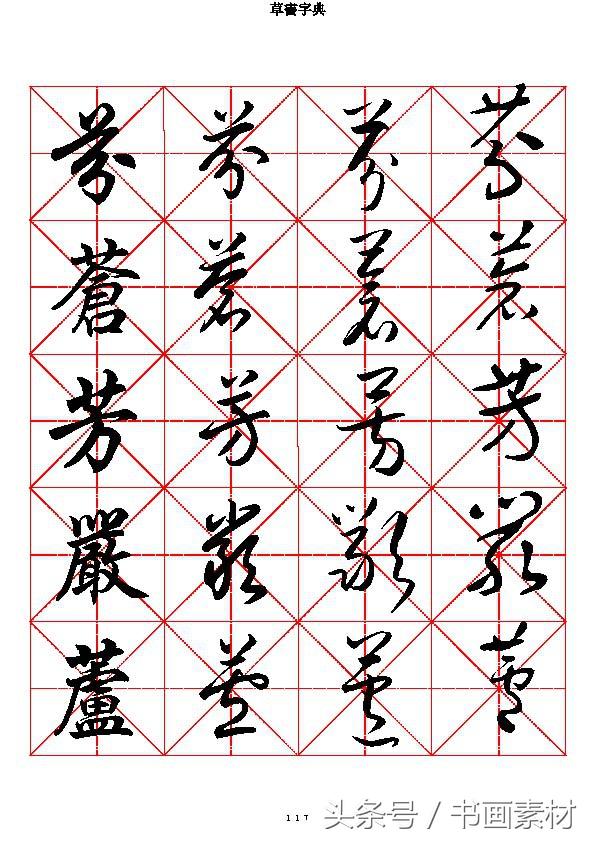 草書字典
芬 芬 芬 芬
蒼 蒼 蒼 蒼
芳 芳 芳 芳
嚴 嚴 嚴 嚴
蘆 蘆 蘆 蘆
117
头条号 / 书画素材